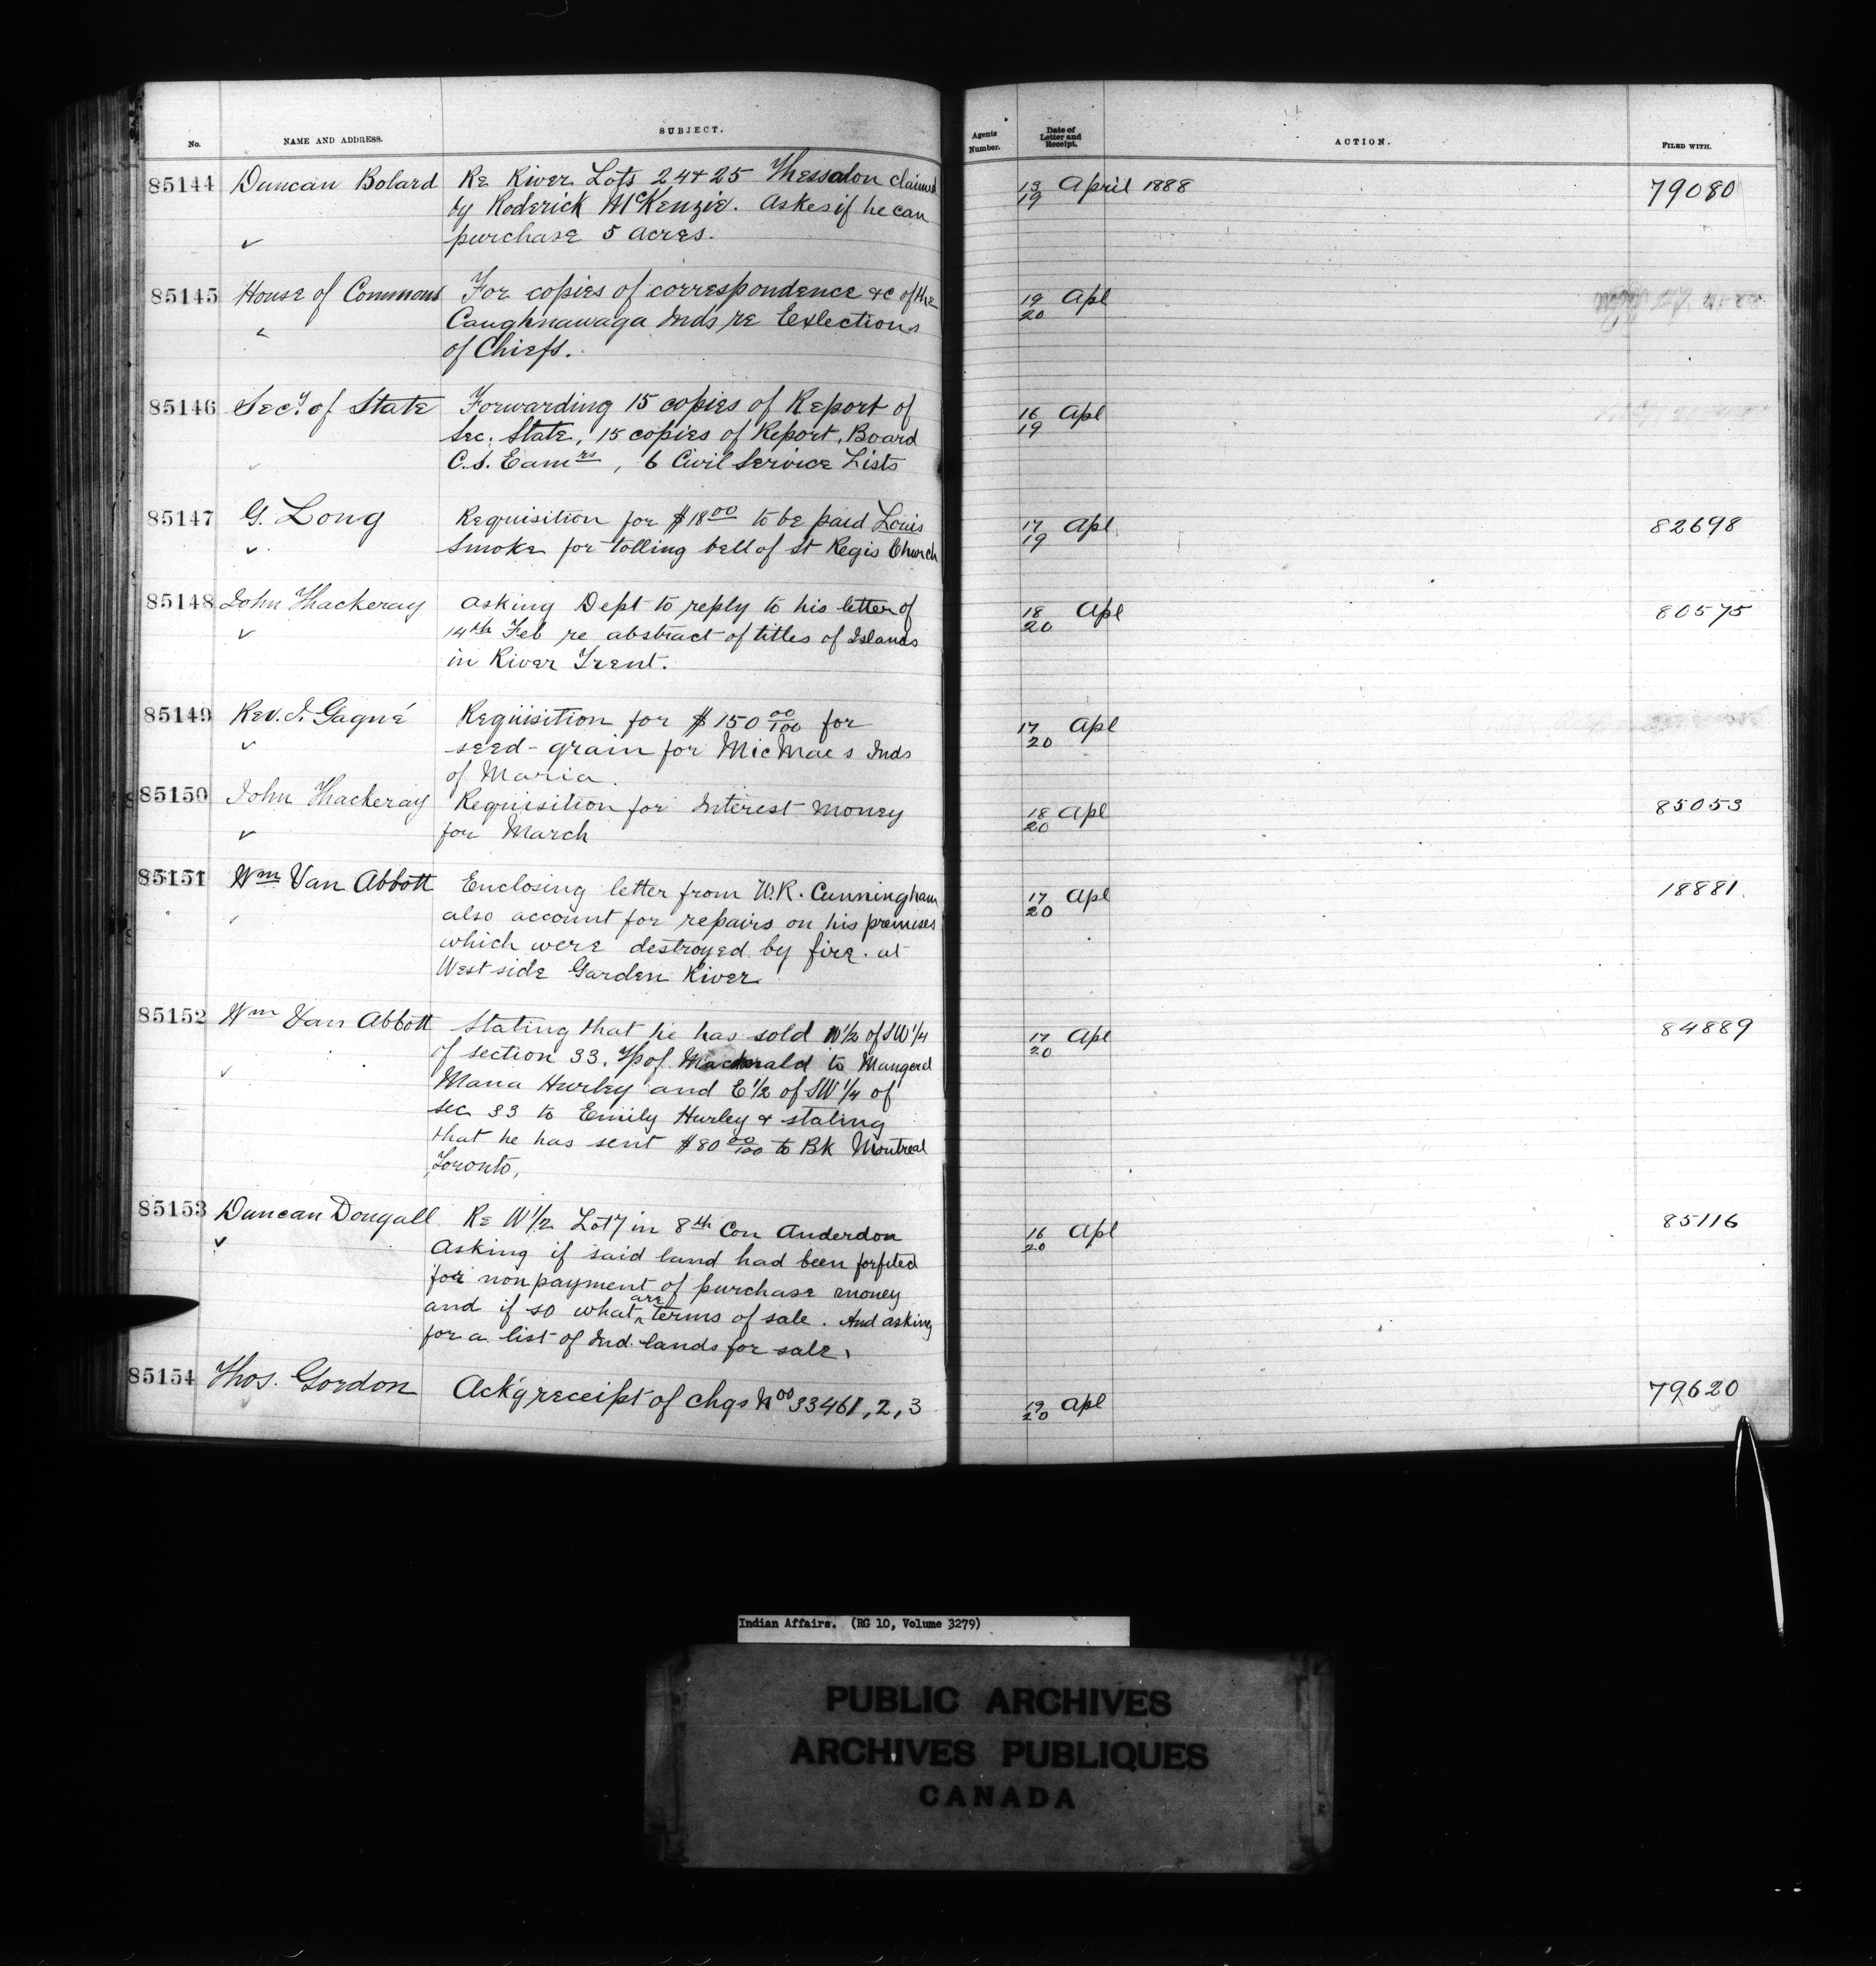 No. NAME AND ADDRESS. SUBJECT. Agents Number. Date of Letter and Receipt. ACTION. FILED WITH.
85144 Duncan Bolard Re River Lots 24 + 25 Thessalon claimed 13/19 April 1888 79080
by Roderick McKenzie. Askes if he can
purchase 5 acres.
85145 House of Commons For copies of correspondence &c of the 19/20 Apl
Caughnawaga Inds re Exlections
of Chiefs.
85146 Secy. of State Forwarding 15 copies of Report of 16/19 Apl
Sec. State, 15 copies of Report, Board
C.S. Eamrs, 6 Civil Service Lists
85147 G. Long Requisition for $18 00 to be paid Louis 17/19 Apl 82698
Smoke for tolling bell of St Regis Church
85148 John Thackeray Asking Dept to reply to his letter of 18/20 Apl 80575
14th Feb re abstract of titles of Islands
in River Trent.
85149 Rev. J. Gagné Requisition for $150 00/100 for 17/20 Apl
seed-grain for MicMacs Inds
of Maria.
85150 John Thackeray Requisition for Interest money 18/20 Apl 85053
for March
85151 Wm Van Abbott Enclosing letter from W.R. Cunningham 17/20 Apl 18881.
also account for repairs on his premises
which were destroyed by fire. at
West side Garden River
85152 Wm Van Abbott Stating that he has sold W 1/2 of SW 1/4 17/20 Apl 84889
of section 33. Tp of Macdonald to
Maria Hurley and E 1/2 of SW 1/4 of
sec 33 to Emily Hurley & stating
that he has sent $80 00/100 to Bk Montreal
Toronto,
85153 Duncan Dougall Re W 1/2 Lot 7 in 8th Con Anderdon 16/20 Apl 85116
Asking if said land had been forfeted
for non payment of purchase money
and if so what are terms of sale. And asking
for a list of Ind. lands for sale.
85154 Thos. Gordon Ack'g receipt of chqs Nos 33461, 2, 3 19/20 Apl 79620
Indian Affairs. (RG 10, Volume 3279)
PUBLIC ARCHIVES
ARCHIVES PUBLIQUES
CANADA